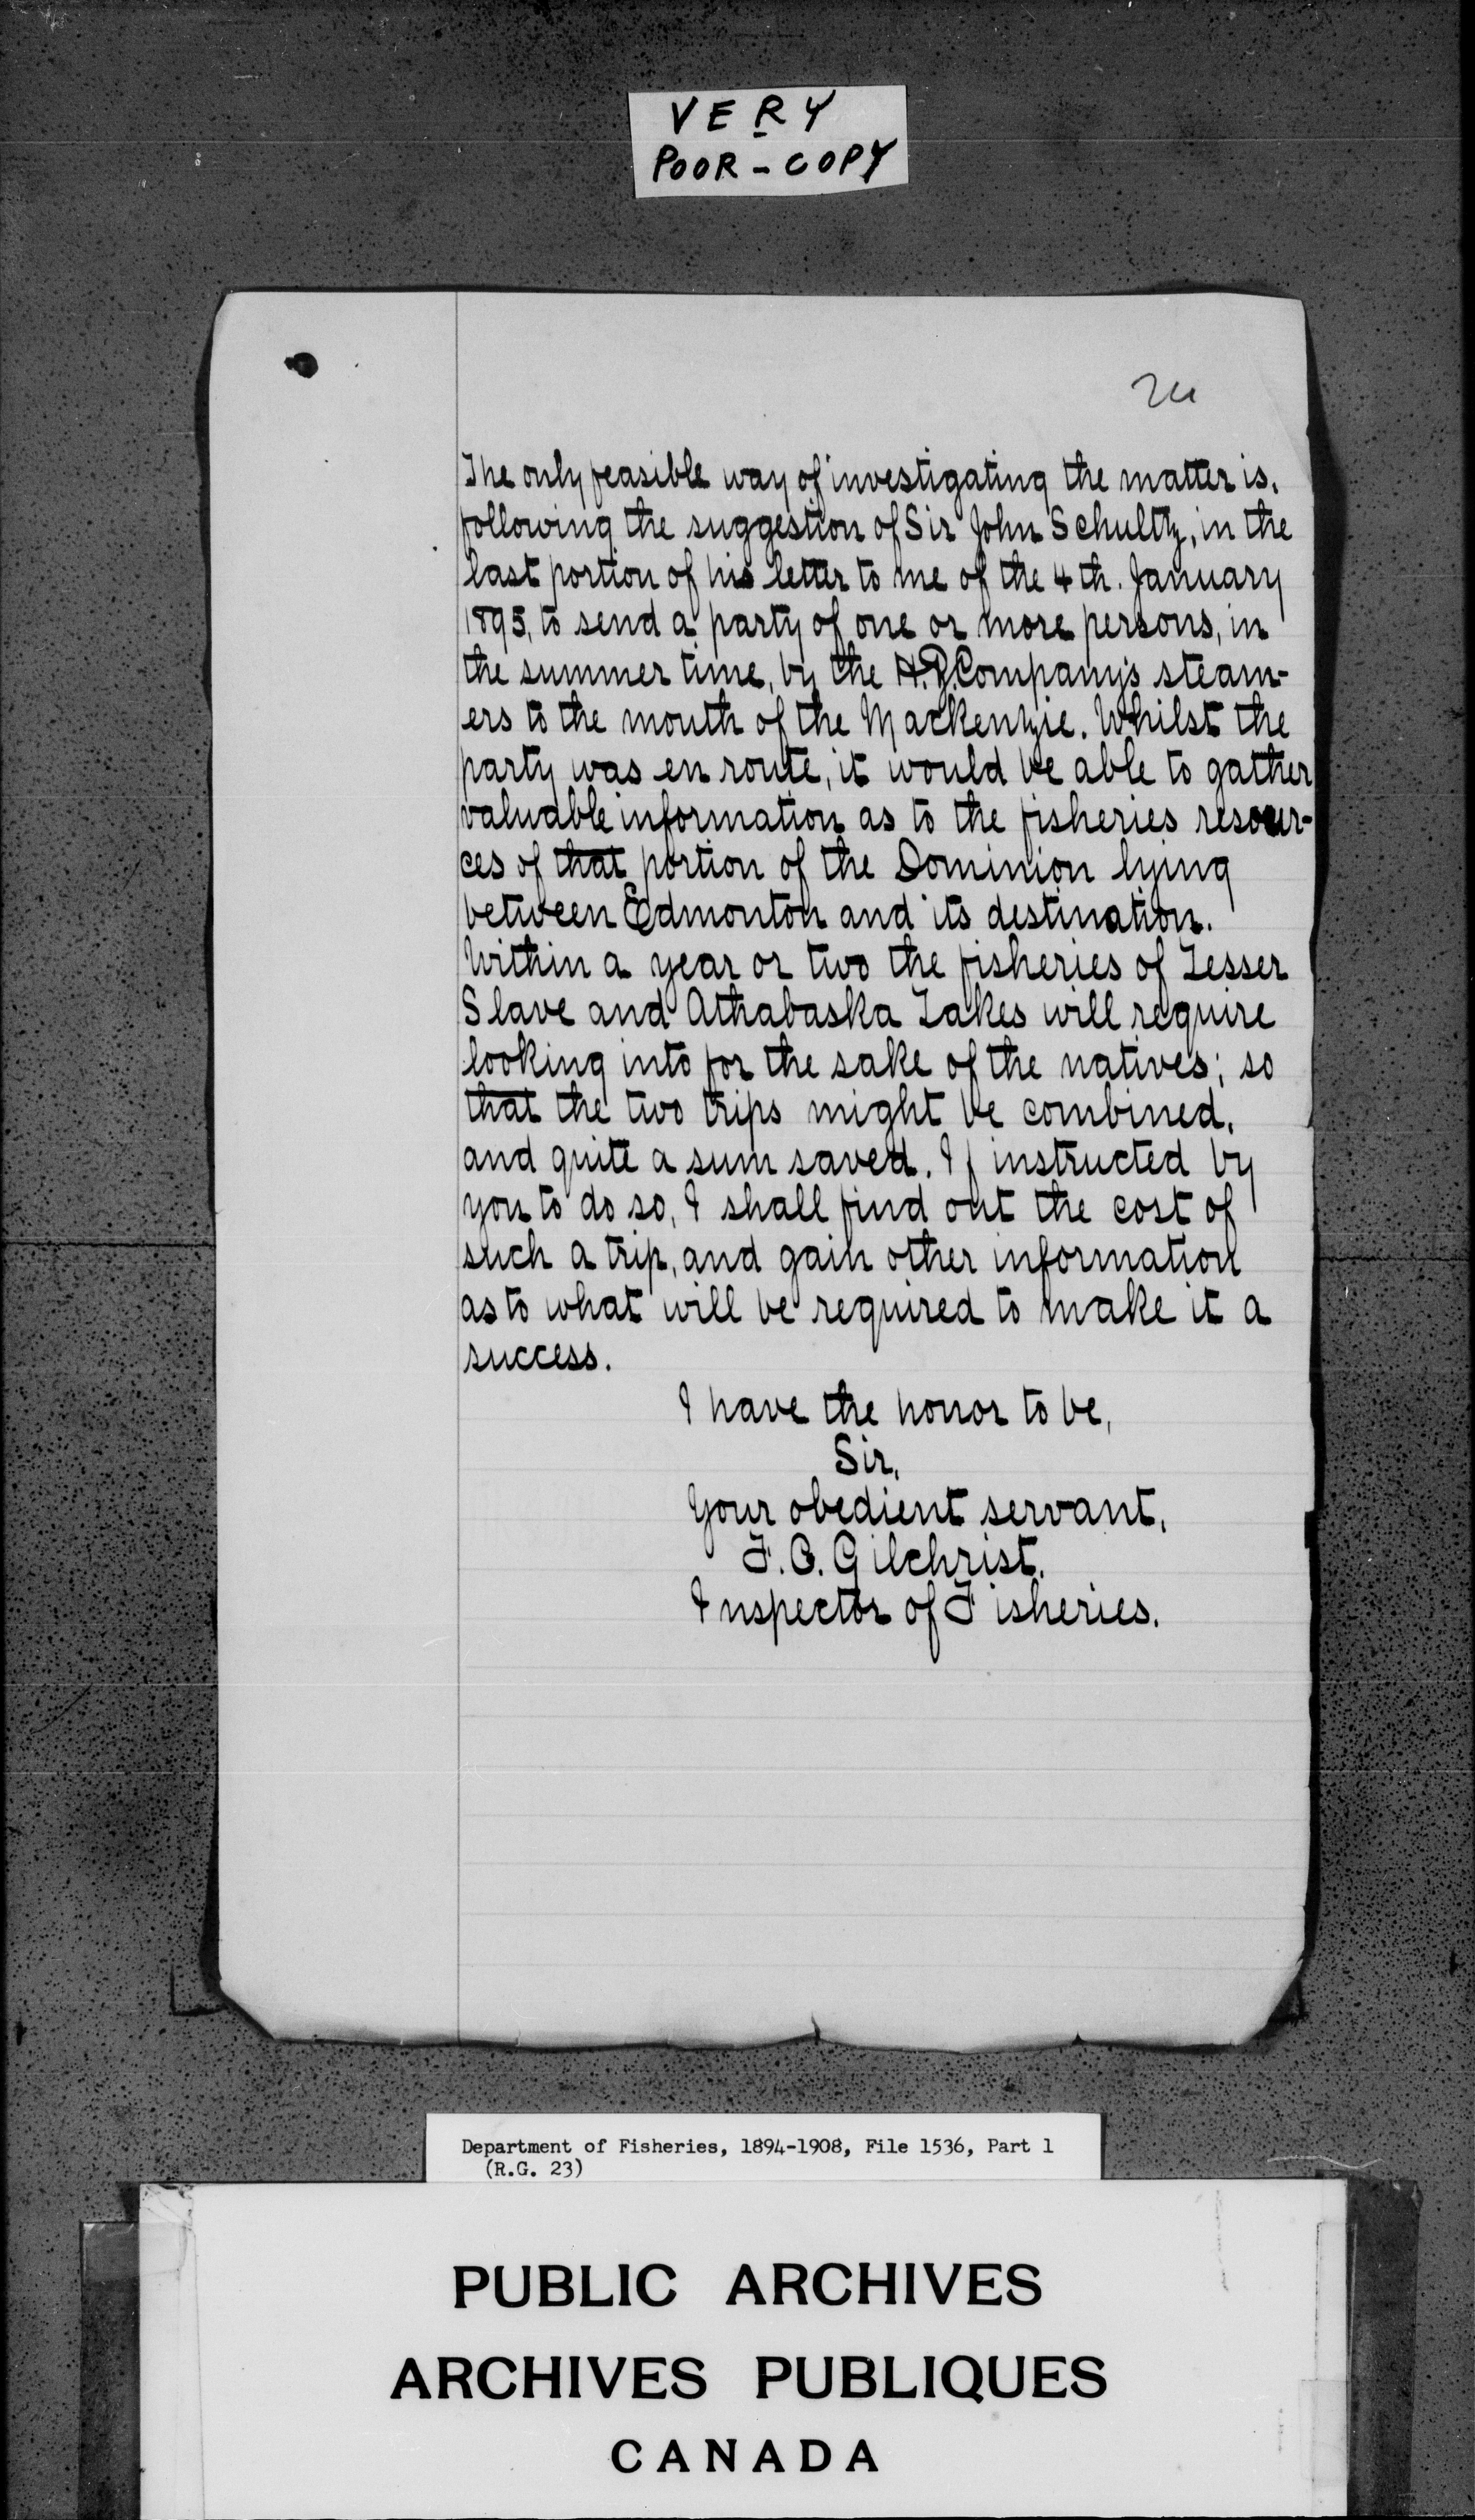 VERY
POOR - COPY
24
The only feasible way of investigating the matter is,
following the suggestion of Sir John Schultz, in the
last portion of his letter to me of the 4th. January
1895, to send a party of one or more persons, in
the summer time, by the H.B. Company's steam-
ers to the mouth of the Mackenzie. Whilst the
party was en route, it would be able to gather
valuable information as to the fisheries resour-
ces of that portion of the Dominion lying
between Edmonton and its destination.
Within a year or two the fisheries of Lesser
Slave and Athabaska Lakes will require
looking into for the sake of the natives; so
that the two trips might be combined,
and quite a sum saved. If instructed by
you to do so, I shall find out the cost of
such a trip, and gain other information
as to what will be required to make it a
success.
I have the honor to be,
Sir,
Your obedient servant,
F.C. Gilchrist.
Inspector of Fisheries.
Department of Fisheries, 1894-1908, File 1536, Part 1
(R.G. 23)
PUBLIC ARCHIVES
ARCHIVES PUBLIQUES
CANADA